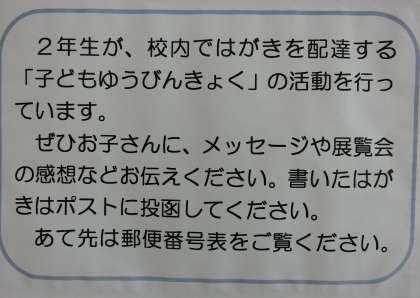 ２年生が、校内ではがきを配達する
「子どもゆうびんきょく」の活動を行っ
ています。
ぜひお子さんに、メッセージや展覧会
の感想などお伝えください。書いたはが
きはポストに投函してください。
あて先は郵便番号表をご覧ください。